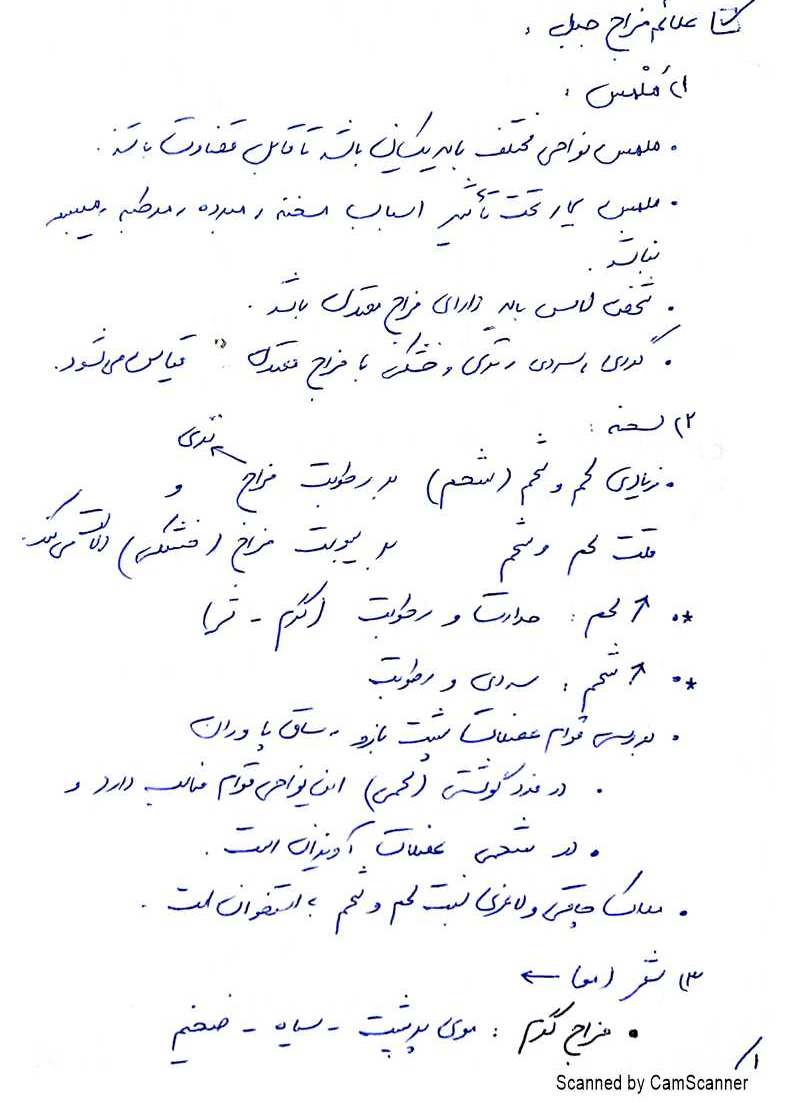 علائم مزاج جبلی :
۱) مَلْمَس :
• ملمس نواحی مختلف باید یکسان باشد تا قابل قضاوت باشد.
• ملمس بیمار تحت تأثیر اسباب مسخنه، مبرده، مرطبه، میبسه
نباشد.
• شخص لامس باید دارای مزاج معتدل باشد.
• گرمی، سردی، تری و خشکی با مزاج معتدل قیاس می‌شود.
۲) سحنه :
تری
• زیادی لحم و شحم (شحم) بر رطوبت مزاج و
قلت لحم و شحم بر یبوبت مزاج (خشکی) دلالت می‌کند.
*• ↑ لحم : حرارت و رطوبت (گرم - تر)
*• ↑ شحم : سردی و رطوبت
• بررسی قوام عضلات پشت بازو - ساق پا و ران
• در فرد گوشتی (لحمی) این نواحی قوام دارد و
• در شحمی عضلات آویزان است.
• ملاک چاقی و لاغری نسبت لحم و شحم به استخوان است.
۳) شعر (مو) ←
• مزاج گرم : موی پرپشت - سیاه - ضخیم
۱
Scanned by CamScanner